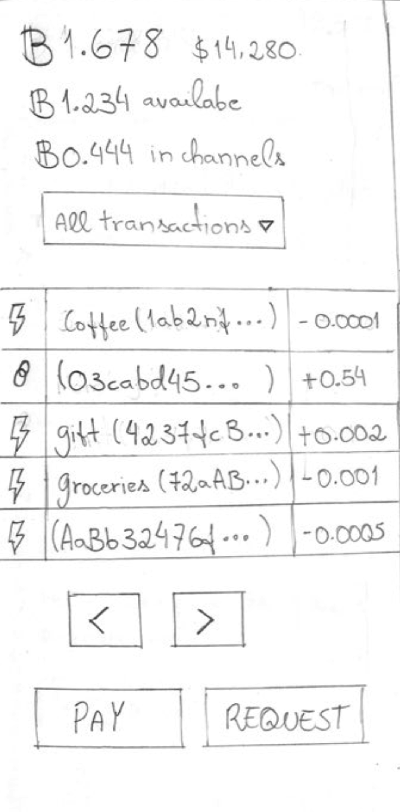 ₿1.678 $14,280
₿1.234 availabe
₿0.444 in channels
All transactions ▿
Coffee (1ab2nf...) -0.0001
(03cabd45... ) +0.54
gift (4237fcB...) +0.002
groceries (72aAB...) -0.001
(AaBb32476f...) -0.0005
< >
PAY REQUEST